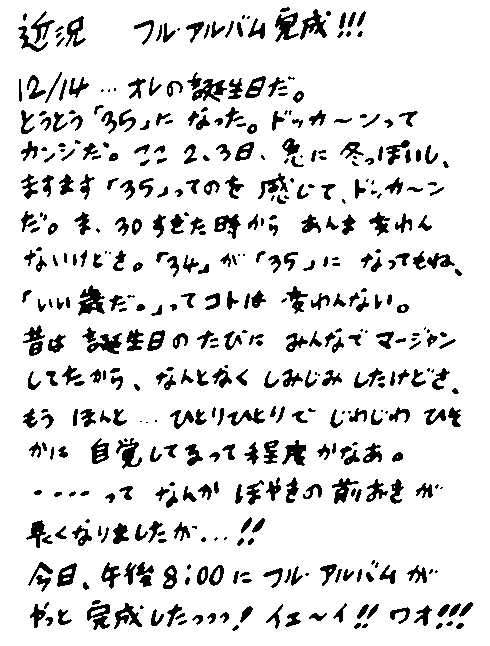 近況　フル・アルバム完成!!!
12/14 … オレの誕生日だ。
とうとう「35」に なった。ドッカ〜ンって
カンジだ。ここ 2、3日、急に 冬っぽいし、
ますます「35」ってのを 感じて、ドッカ〜ン
だ。ま、30すぎた時から あんま 変わん
ないけどさ。「34」が「35」に なってもね、
「いい歳だ。」ってコトは 変わんない。
昔は 誕生日のたびに みんなで マージャン
してたから、なんとなく しみじみ したけどさ、
もう ほんと … ひとりひとりで じわじわ ひそ
かに 自覚してるって程度かなぁ。
‥‥って なんか ぼやきの 前おきが
長くなりましたが…!!
今日、午後8:00に フル・アルバムが
やっと 完成したっっっ! イェ〜イ!! ワオ!!!